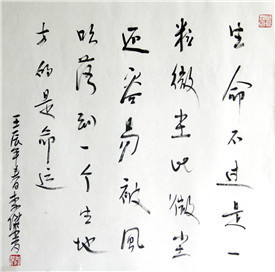 生命不过是一
粒微尘比微尘
还容易被风
吹落到一个生地
方的是命运
壬辰年春